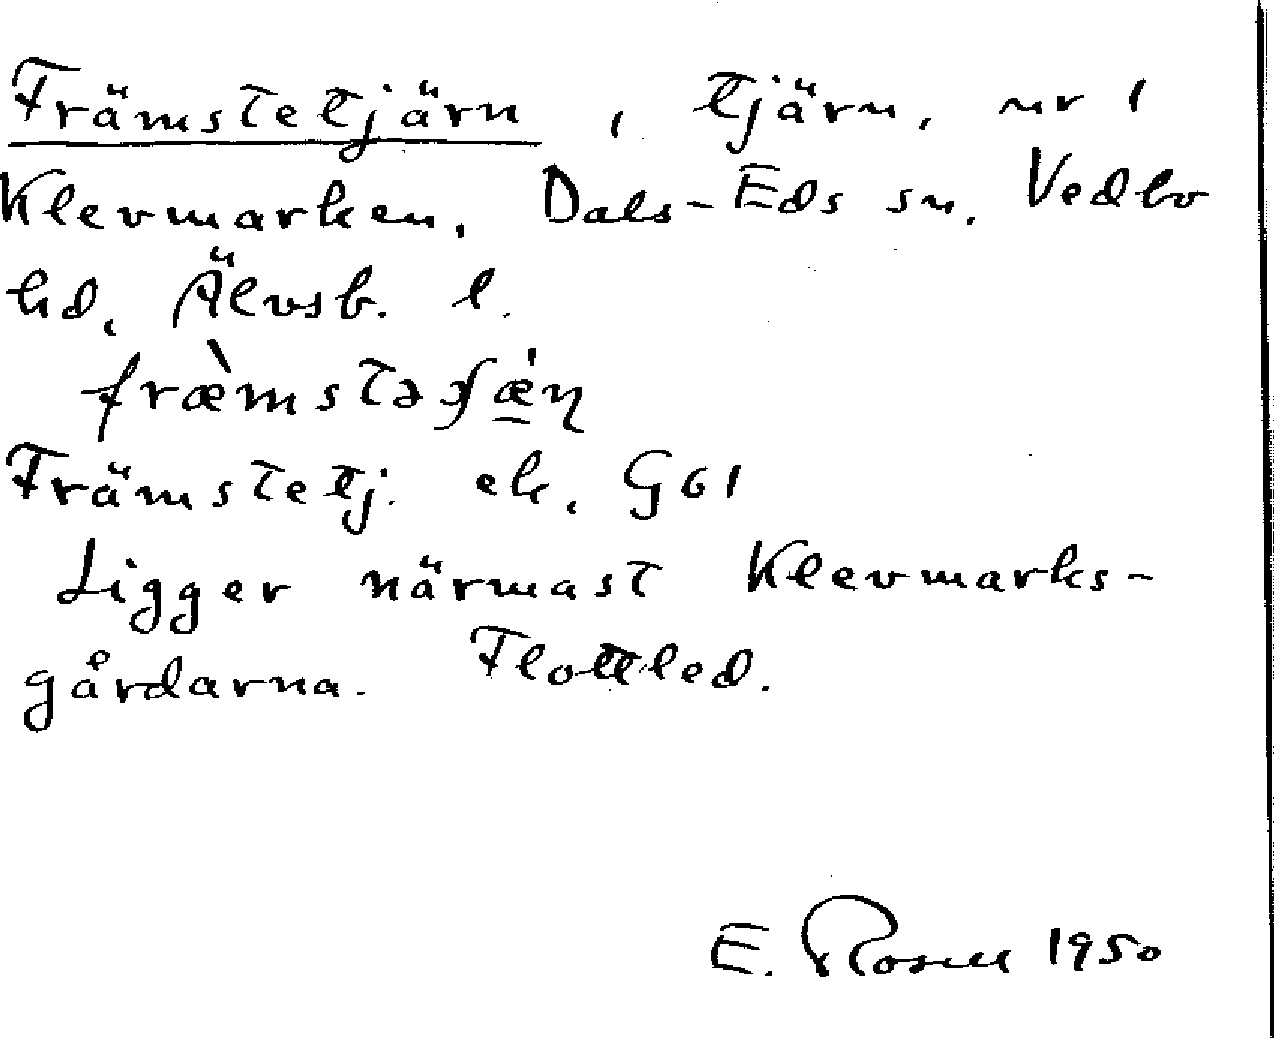 Främstetjärn, tjärn, nr 1
Klevmarken, Dals-Eds sn. Vedbo
hd, Älvsb. l.
Främstetj. ek. G61
Ligger närmast Klevmarks-
gårdarna. Flottled.
E. Rosell 1950